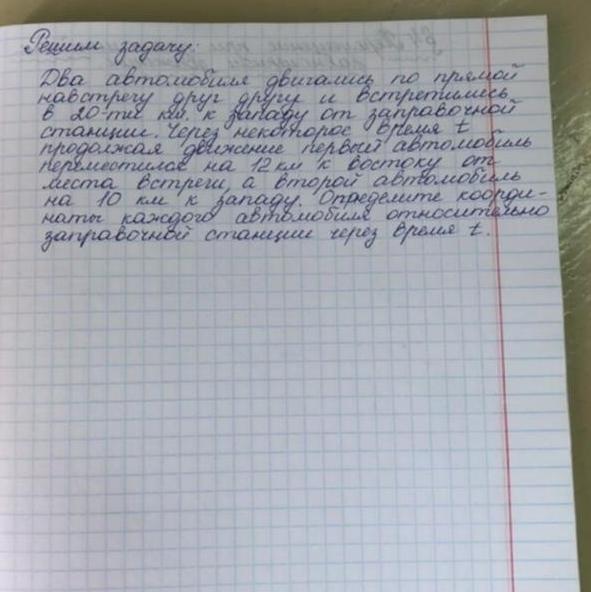 Решим задачу:
Два автомобиля двигались по прямой
навстречу друг другу и встретились
в 20-ти км. к западу от заправочной
станции. Через некоторое время t
продолжая движение первый автомобиль
переместился на 12 км к востоку от
места встречи, а второй автомобиль
на 10 км к западу. Определите коорди-
наты каждого автомобиля относительно
заправочной станции через время t.